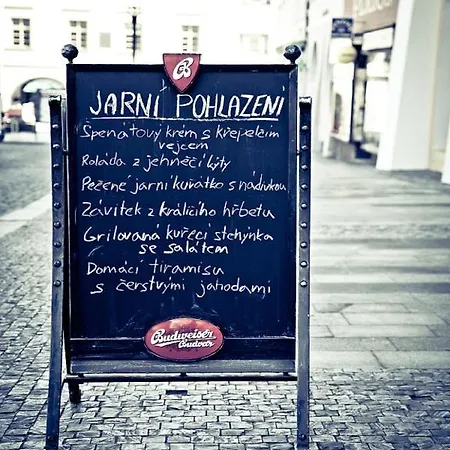 JARNÍ POHLAZENÍ
Spenátový krém s křepelčím
vejcem
Roláda z jehněčí kýty
Pečené jarní kuřátko s nádivkou
Závitek z králičího hřbetu
Grilovaná kuřecí stehýnka
se salátem
Domácí tiramisu
s čerstvými jahodami
Budweiser
Budvar